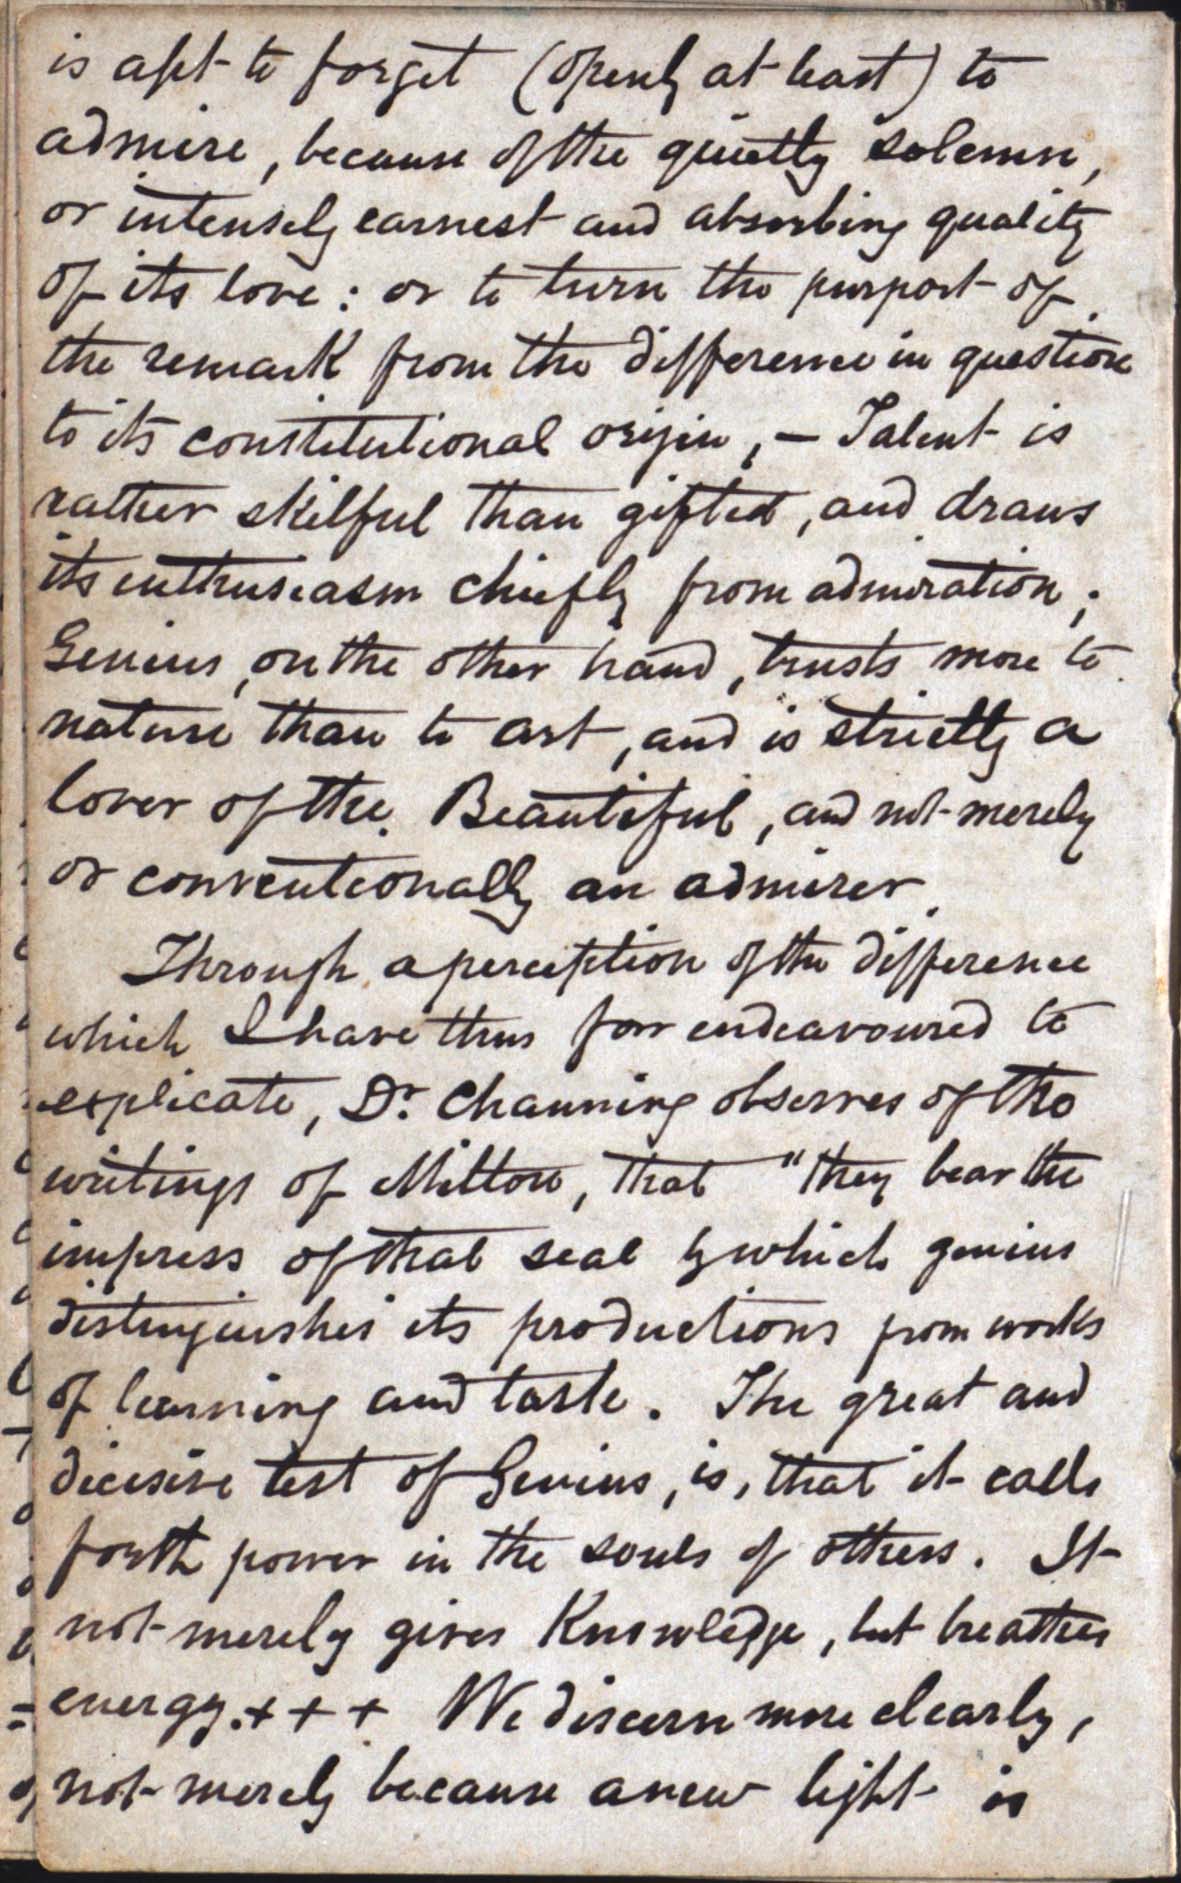 is apt to forget (openly at least) to
admire, because of the quietly solemn,
or intensely earnest and absorbing quality
of its love: or to turn the purport of
the remark from the difference in question
to its constitutional origin, — Talent is
rather skilful than gifted, and draws
its enthusiasm chiefly from admiration;
Genius, on the other hand, trusts more to
nature than to art, and is strictly a
lover of the Beautiful, and not merely
or conventionally an admirer.
Through a perception of the difference
which I have thus farr endeavoured to
explicate, Dr. Channing observes of the
writings of Milton, that "they bear the
impress of that seal by which genius
distinguishes its productions from works
of learning and taste. The great and
decisive test of Genius, is, that it calls
forth power in the souls of others. It
not merely gives Knowledge, but breathes
energy. + + + We discern more clearly,
not merely because a new light is